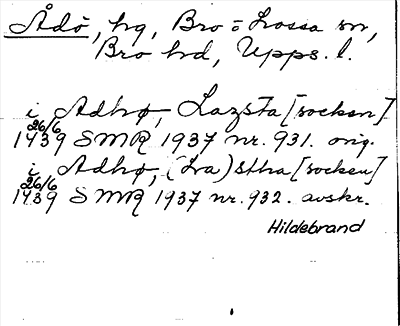 Ådö, hg, Bro o Lossa sn,
Bro hd, Upps. l.
i Adhø, Lazsta [socken]
26/6 1439 SMR 1937 nr. 931. orig.
i Adhø, (La)stha [socken]
26/6 1439 SMR 1937 nr. 932. avskr.
Hildebrand